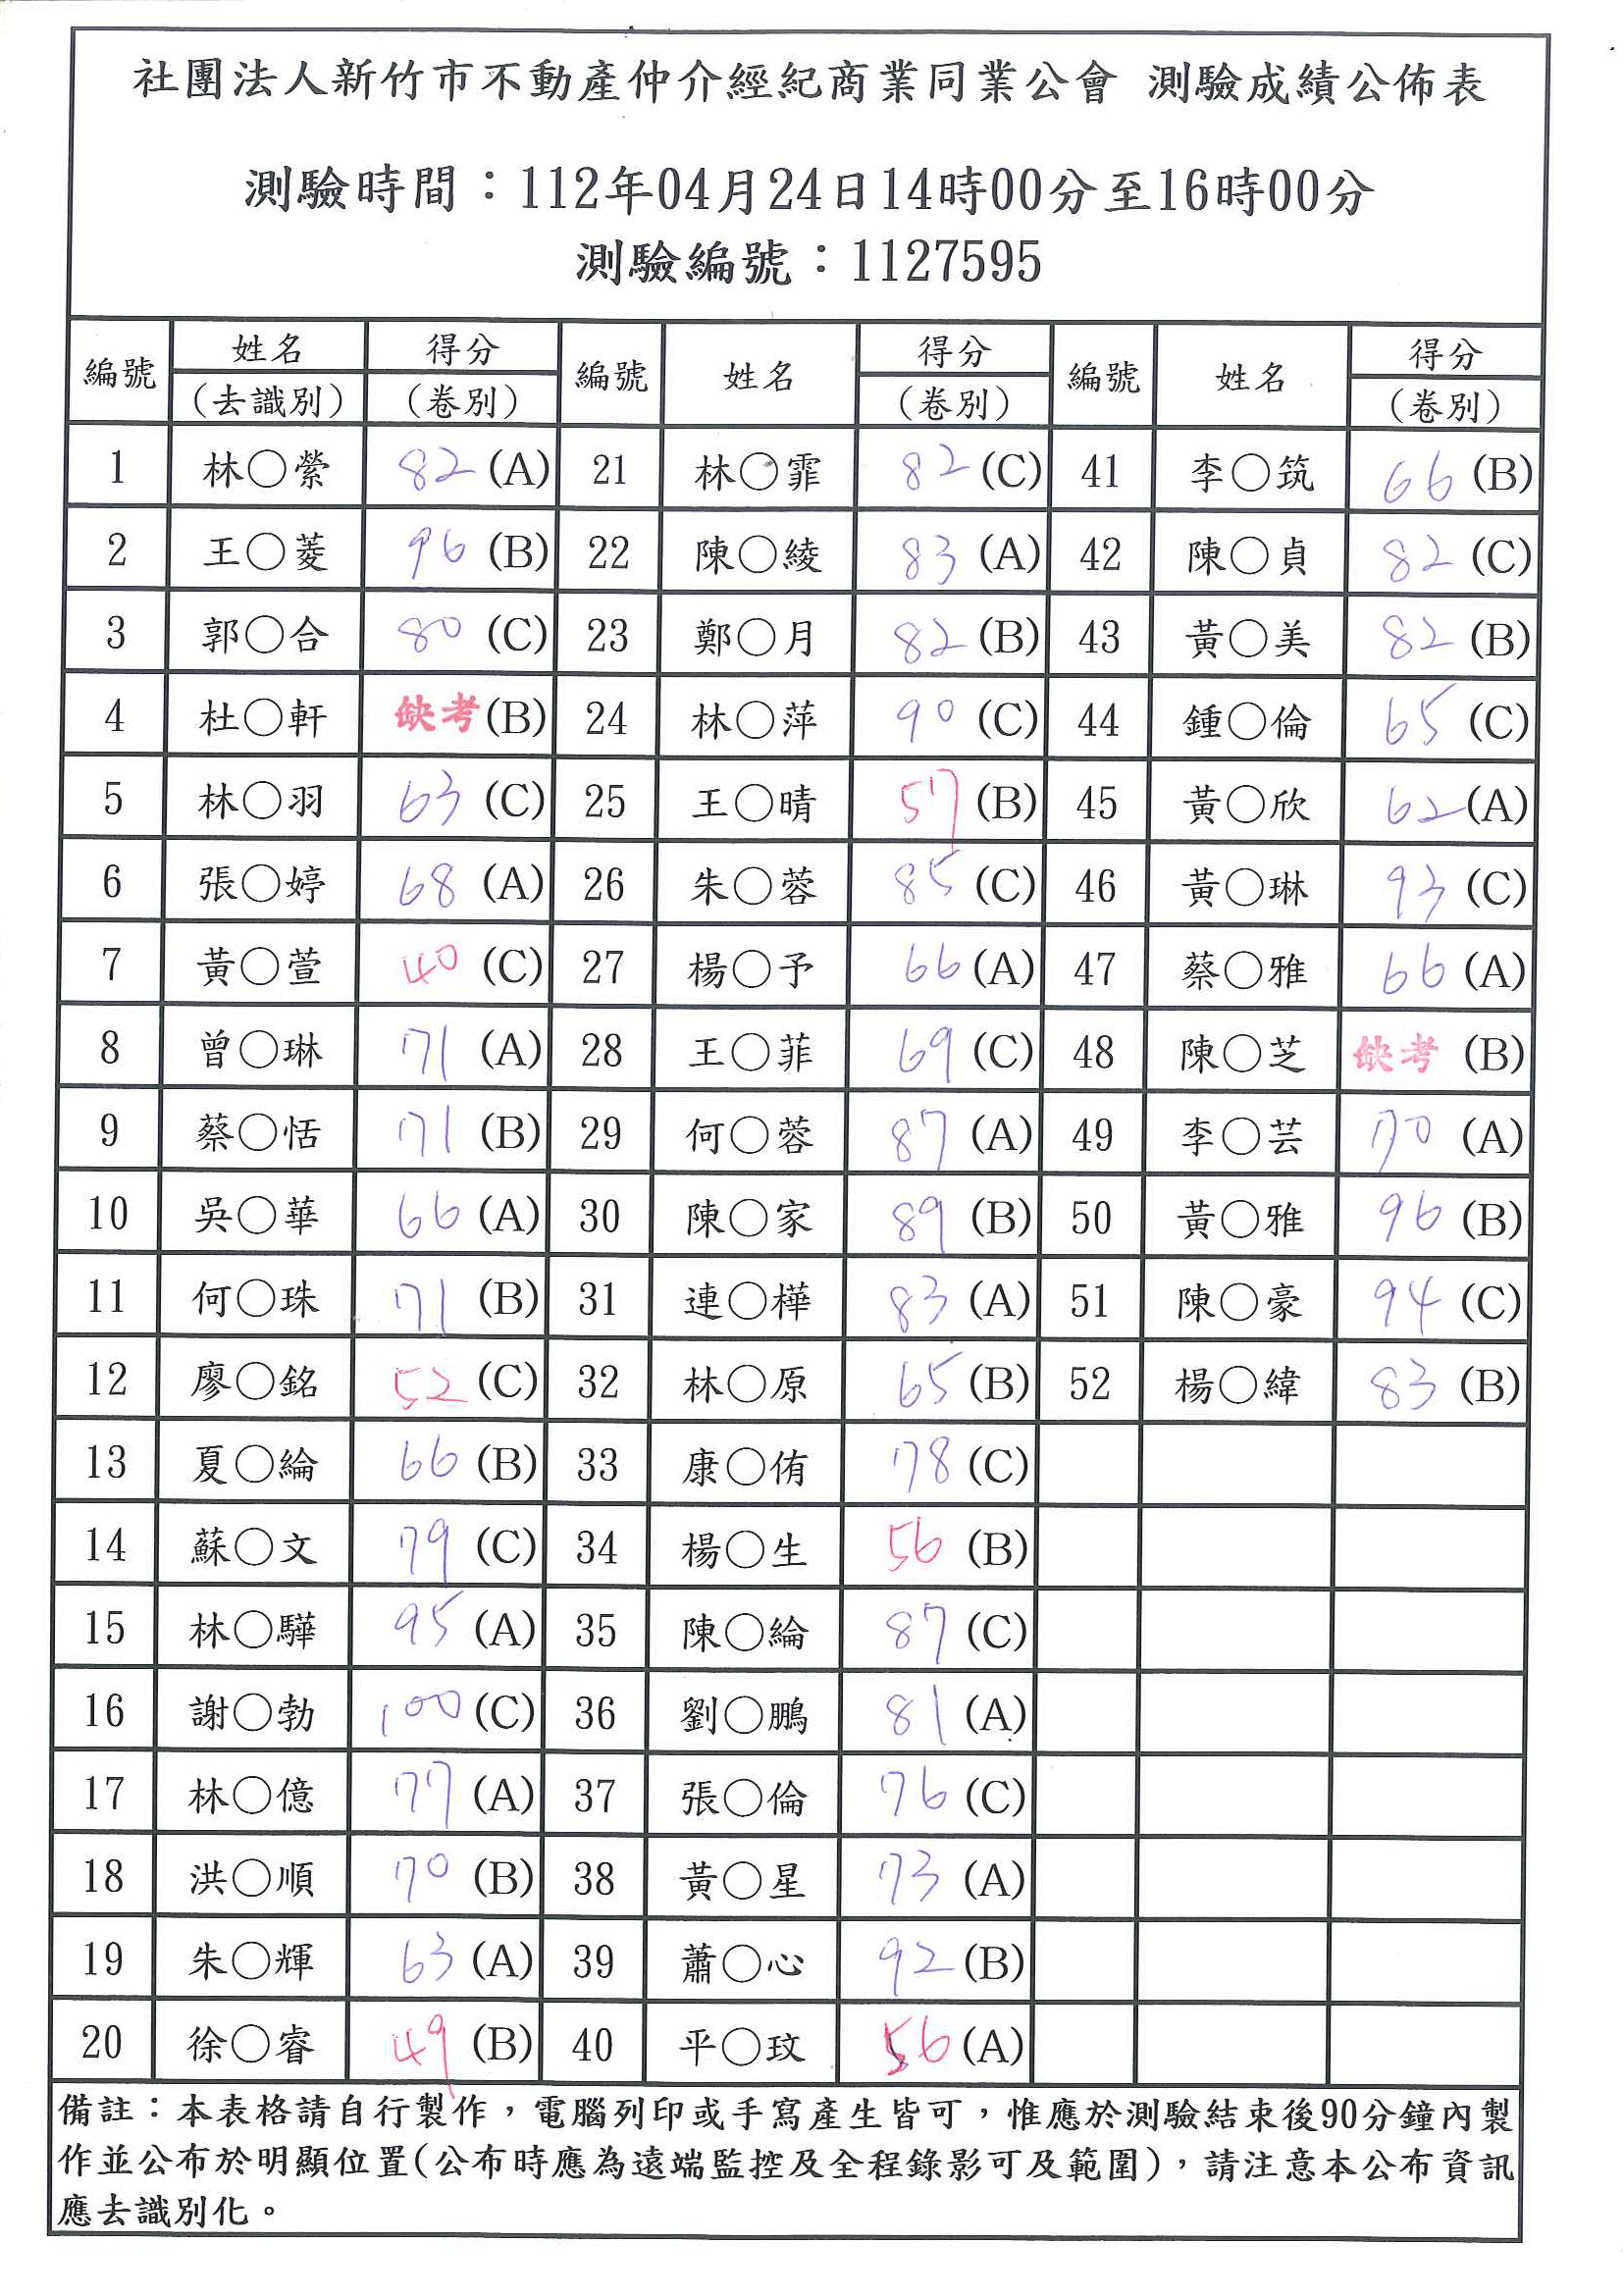 社團法人新竹市不動產仲介經紀商業同業公會 測驗成績公佈表
測驗時間：112年04月24日14時00分至16時00分
測驗編號：1127595
編號 姓名 得分 編號 姓名 得分 編號 姓名 得分
(去識別) (卷別) (卷別) (卷別)
1 林○縈 82 (A) 21 林○霏 82 (C) 41 李○筑 66 (B)
2 王○菱 96 (B) 22 陳○綾 83 (A) 42 陳○貞 82 (C)
3 郭○合 80 (C) 23 鄭○月 82 (B) 43 黃○美 82 (B)
4 杜○軒 缺考 (B) 24 林○萍 90 (C) 44 鍾○倫 65 (C)
5 林○羽 63 (C) 25 王○晴 57 (B) 45 黃○欣 62 (A)
6 張○婷 68 (A) 26 朱○蓉 85 (C) 46 黃○琳 93 (C)
7 黃○萱 40 (C) 27 楊○予 66 (A) 47 蔡○雅 66 (A)
8 曾○琳 71 (A) 28 王○菲 69 (C) 48 陳○芝 缺考 (B)
9 蔡○恬 71 (B) 29 何○蓉 87 (A) 49 李○芸 70 (A)
10 吳○華 66 (A) 30 陳○家 89 (B) 50 黃○雅 96 (B)
11 何○珠 71 (B) 31 連○樺 83 (A) 51 陳○豪 94 (C)
12 廖○銘 52 (C) 32 林○原 65 (B) 52 楊○緯 83 (B)
13 夏○綸 66 (B) 33 康○侑 78 (C)
14 蘇○文 79 (C) 34 楊○生 56 (B)
15 林○驊 95 (A) 35 陳○綸 87 (C)
16 謝○勃 100 (C) 36 劉○鵬 81 (A)
17 林○億 77 (A) 37 張○倫 76 (C)
18 洪○順 70 (B) 38 黃○星 73 (A)
19 朱○輝 63 (A) 39 蕭○心 92 (B)
20 徐○睿 49 (B) 40 平○玟 56 (A)
備註：本表格請自行製作，電腦列印或手寫產生皆可，惟應於測驗結束後90分鐘內製
作並公布於明顯位置(公布時應為遠端監控及全程錄影可及範圍)，請注意本公布資訊
應去識別化。